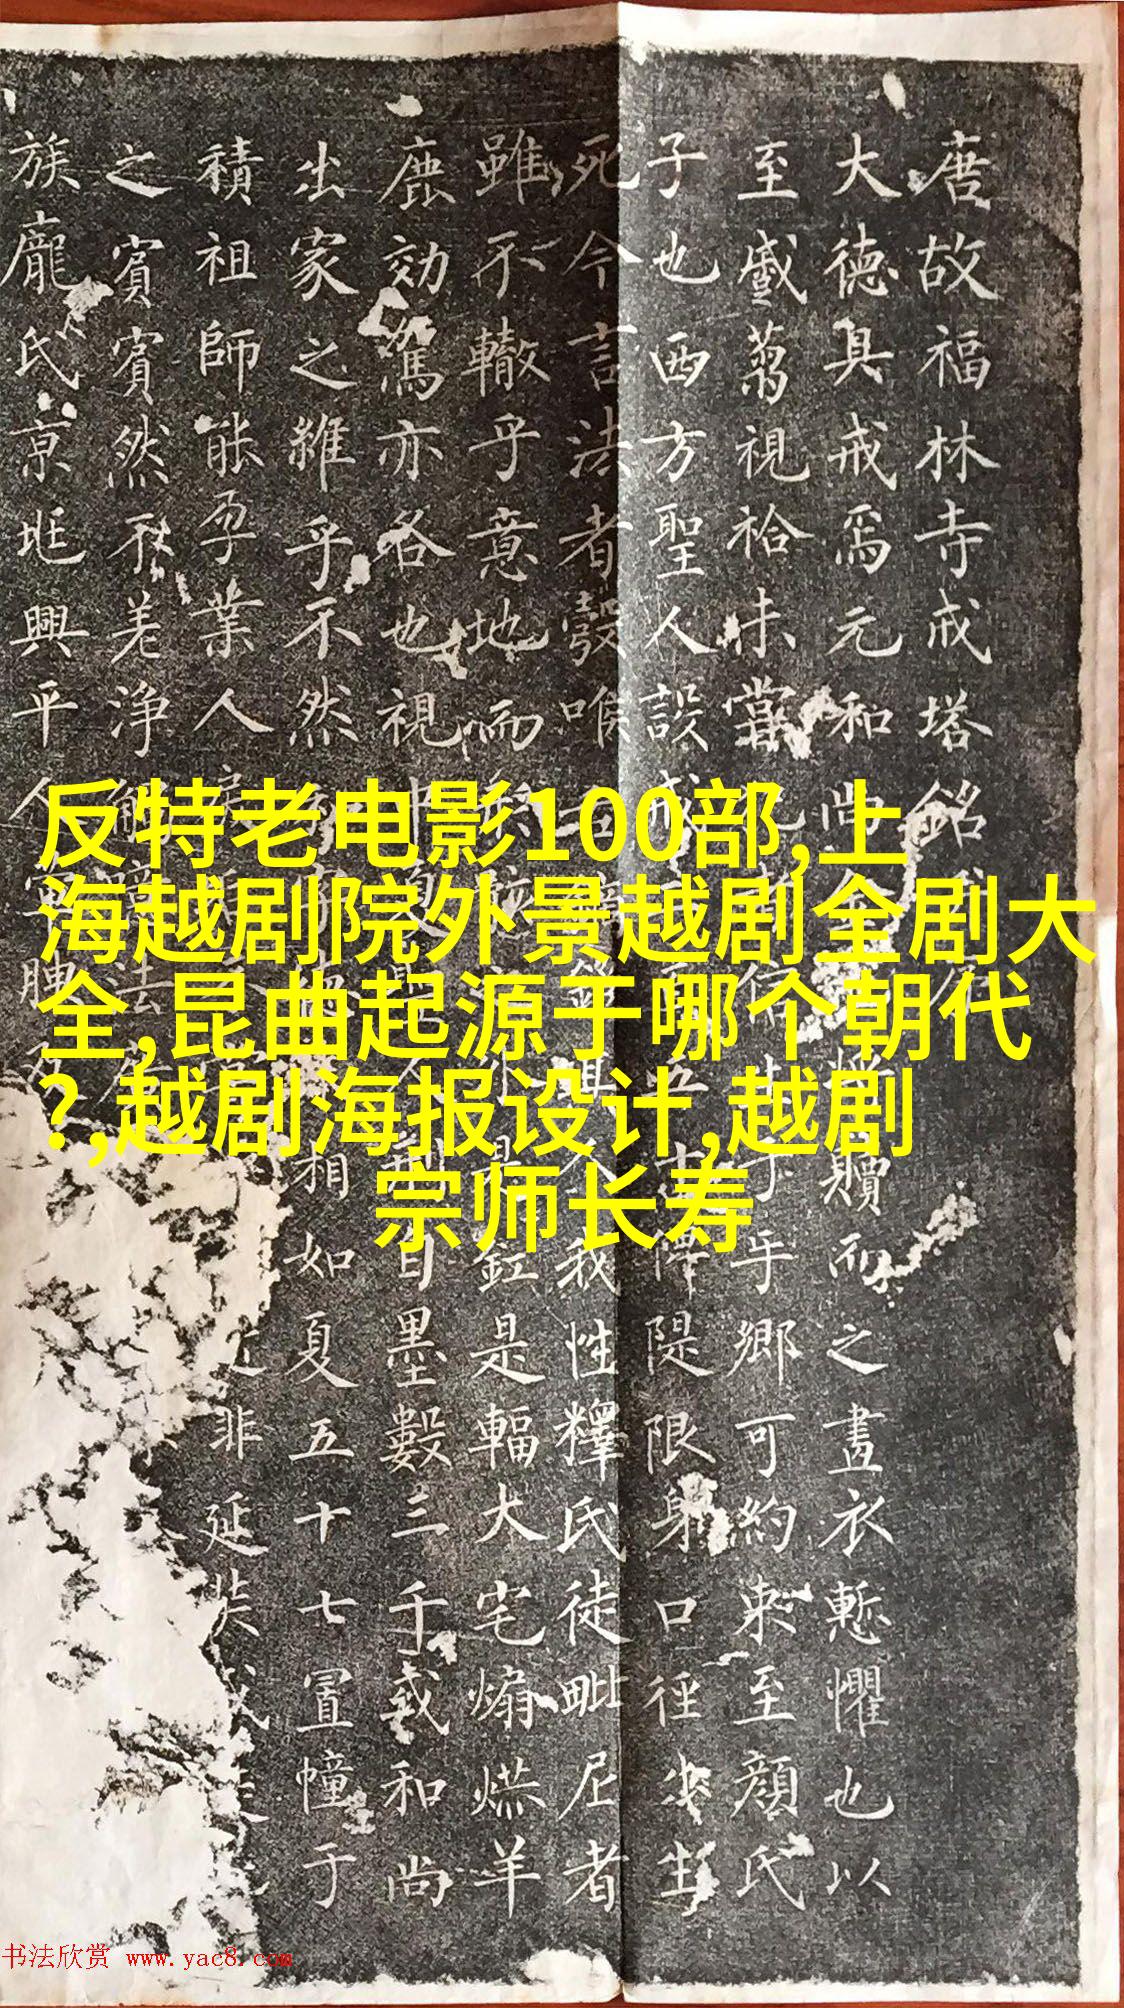 唐故福林寺戒塔銘
大德具戒焉元和尚 贖而之畫衣慙懼也以
至 視袷未嘗 于乎鄉可約束至顏氏
子也西方聖人設戒 隄限身口徑 生
死今言法者彀喉 我性釋氏徒毗尼者
雖不轍乎意地而 是輻大宅煽 羊
鹿効駕亦各也視 日墨數三千威和尚
出家之 乎不然 相如夏五十七 幢于
積祖師能孕業人 非延
之賓賓然不差净
族龐氏京兆興平人
反特老电影100部,上
海越剧院外景越剧全剧大
全,昆曲起源于哪个朝代
?,越剧海报设计,越剧
宗师长寿
书法欣赏 www.yac8.com